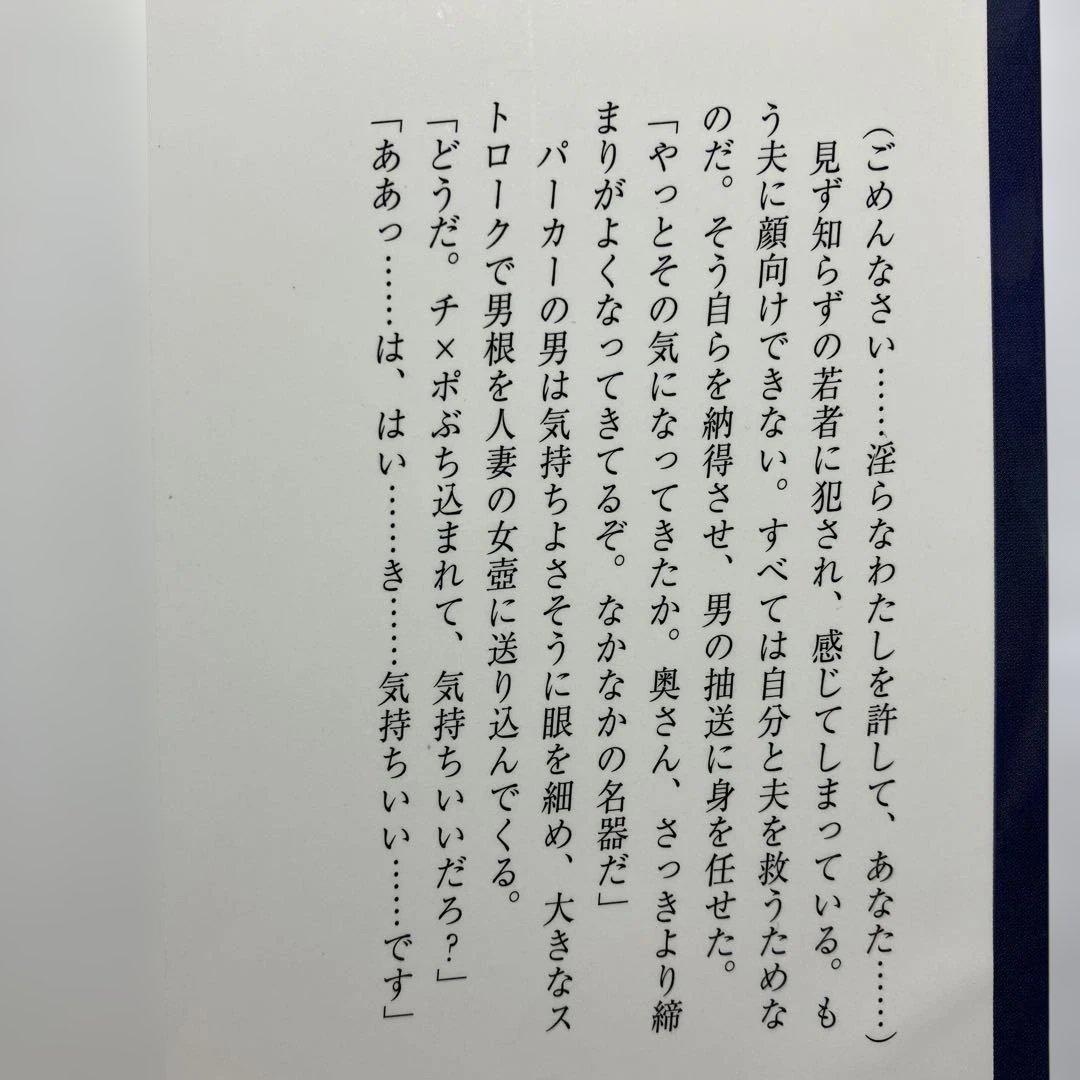 （ごめんなさい……淫らなわたしを許して、あなた……）
　見ず知らずの若者に犯され、感じてしまっている。も
う夫に顔向けできない。すべては自分と夫を救うためな
のだ。そう自らを納得させ、男の抽送に身を任せた。
「やっとその気になってきたか。奥さん、さっきより締
まりがよくなってきてるぞ。なかなかの名器だ」
　パーカーの男は気持ちよさそうに眼を細め、大きなス
トロークで男根を人妻の女壺に送り込んでくる。
「どうだ。チ×ポぶち込まれて、気持ちいいだろ？」
「ああっ……は、はい……き……気持ちいい……です」